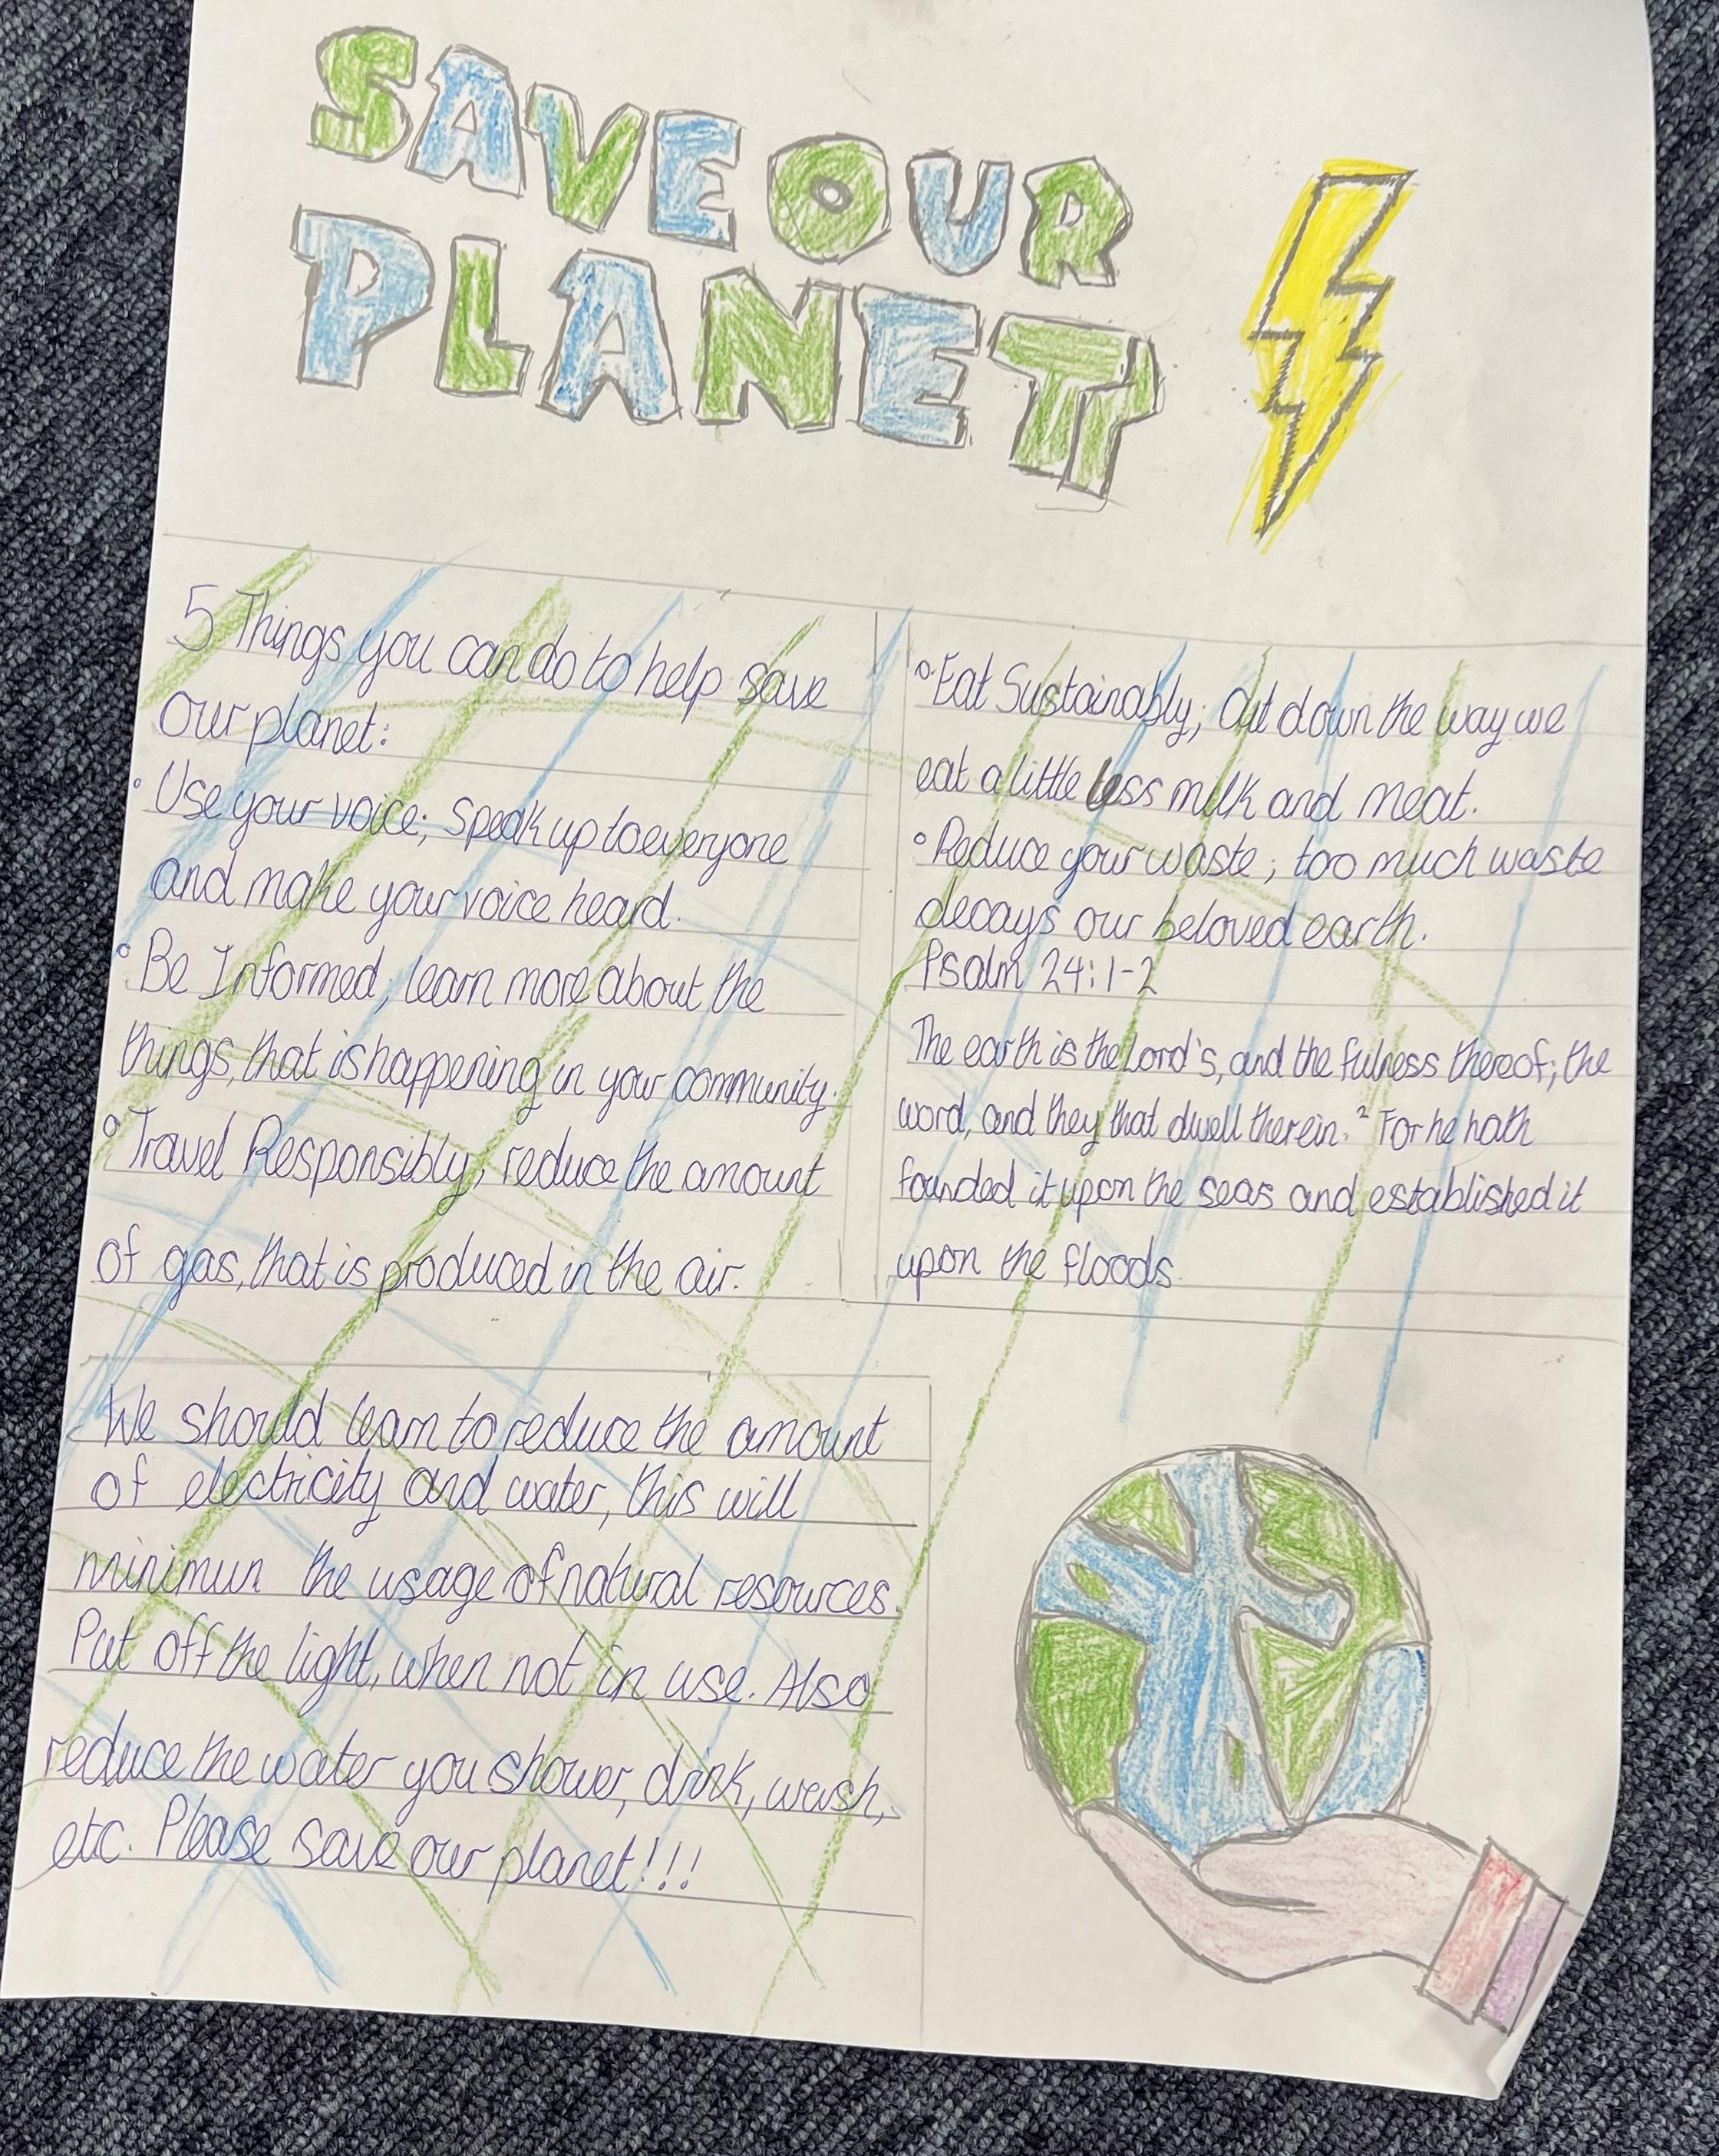 SAVE OUR
PLANET
5 Things you can do to help save
our planet:
° Use your voice; Speak up to everyone
and make your voice heard.
° Be Informed; learn more about the
things, that is happening in your community.
° Travel Responsibly; reduce the amount
of gas, that is produced in the air.
° Eat Sustainably; Cut down the way we
eat a little less milk and meat.
° Reduce your waste; too much waste
decays our beloved earth.
Psalm 24:1-2
The earth is the Lord's, and the fulness thereof; the
word, and they that dwell therein. ² For he hath
founded it upon the seas and established it
upon the floods.
We should learn to reduce the amount
of electricity and water, this will
minimun the usage of natural resources.
Put off the light, when not in use. Also
reduce the water you shower, drink, wash,
etc. Please save our planet!!!